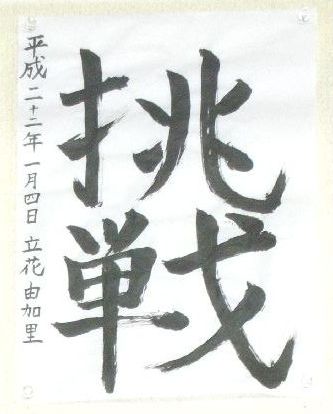 挑戦
平成二十二年一月四日 立花由加里